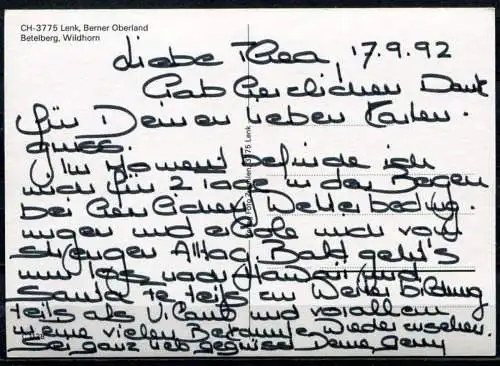 CH-3775 Lenk, Berner Oberland
Betelberg, Wildhorn
Liebe Thea, 17.9.92
Hab herzlichen Dank
für Deinen lieben Karten-
gruss.
Im Moment befinde ich
mich für 2 Tage in den Bergen
bei herrlichen Wetterbeding-
ungen und erhole mich vom
strengen Alltag. Bald geht's
nun los nach Hawaii und
teils in Weiterbildung
teils als Urlaub und vor allem
meine vielen Bekannte Wiedersehen.
Sei ganz lieb gegrüsst Deine